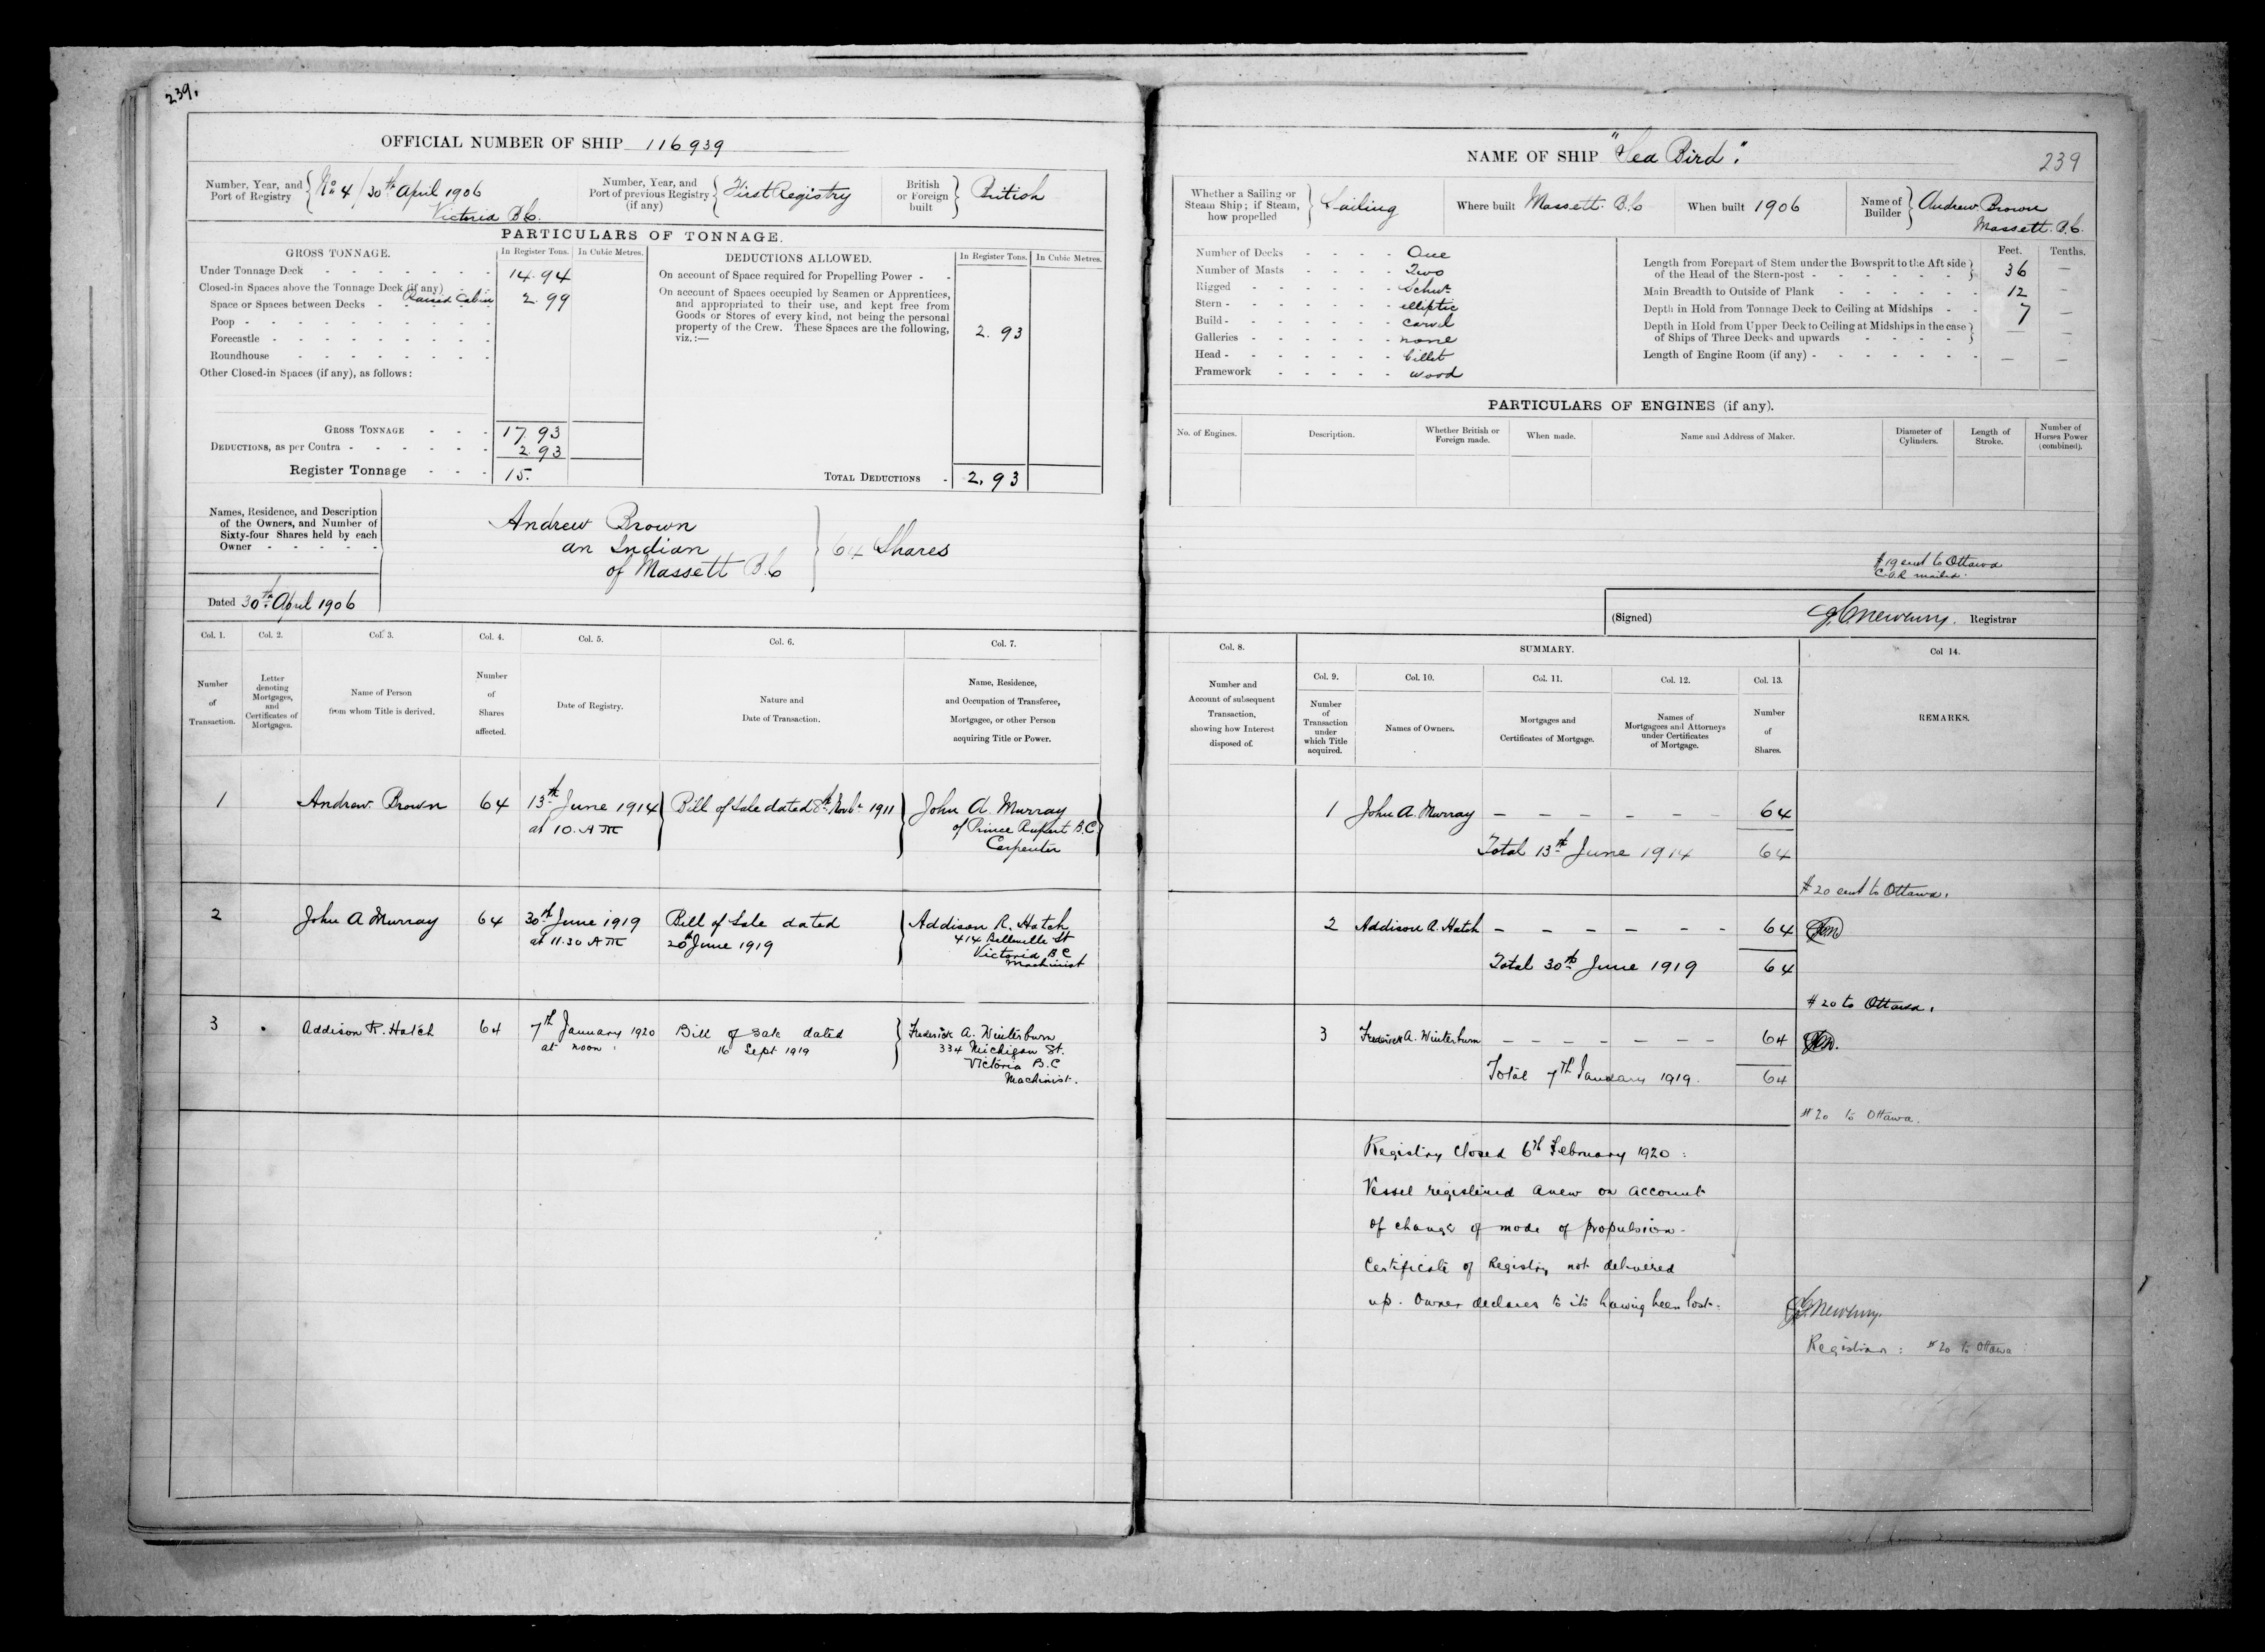 239.
OFFICIAL NUMBER OF SHIP 116939
Number, Year, and Port of Registry { No 4 / 30th April 1906
Victoria B.C.
Number, Year, and Port of previous Registry (if any) { First Registry
British or Foreign built } British
PARTICULARS OF TONNAGE.
GROSS TONNAGE. In Register Tons. In Cubic Metres.
Under Tonnage Deck - - - - - - - 14.94
Closed-in Spaces above the Tonnage Deck (if any) -
Raised Cabin
Space or Spaces between Decks - 2.99
Poop - - - - - - - - -
Forecastle - - - - - - - -
Roundhouse - - - - - - -
Other Closed-in Spaces (if any), as follows:
GROSS TONNAGE - - - 17.93
DEDUCTIONS, as per Contra - - - - - - 2.93
Register Tonnage - - - 15.
DEDUCTIONS ALLOWED. In Register Tons. In Cubic Metres.
On account of Space required for Propelling Power - -
On account of Spaces occupied by Seamen or Apprentices,
and appropriated to their use, and kept free from
Goods or Stores of every kind, not being the personal
property of the Crew. These Spaces are the following,
viz.:— 2.93
TOTAL DEDUCTIONS - 2.93
Names, Residence, and Description
of the Owners, and Number of
Sixty-four Shares held by each
Owner - - - - -
Andrew Brown
an Indian
of Massett B.C
} 64 Shares
Dated 30th April 1906
Col. 1. Col. 2. Col. 3. Col. 4. Col. 5. Col. 6. Col. 7.
Number of Transaction.
Letter denoting Mortgages, and Certificates of Mortgages.
Name of Person from whom Title is derived.
Number of Shares affected.
Date of Registry.
Nature and Date of Transaction.
Name, Residence, and Occupation of Transferee, Mortgagee, or other Person acquiring Title or Power.
1 Andrew Brown 64 13th June 1914 Bill of Sale dated 8th Novbr 1911 John A. Murray
at 10. AM of Prince Rupert B.C.
Carpenter
2 John A Murray 64 30th June 1919 Bill of Sale dated Addison R. Hatch
at 11.30 AM 20th June 1919 414 Belleville St
Victoria BC
Machinist
3 Addison R. Hatch 64 7th January 1920 Bill of Sale dated Frederick A. Winterburn
at noon: 16 Sept 1919 334 Michigan St.
Victoria B.C
Machinist.
NAME OF SHIP "Sea Bird". 239
Whether a Sailing or Steam Ship; if Steam, how propelled } Sailing
Where built Massett. B.C
When built 1906
Name of Builder { Andrew Brown
Massett. B.C.
Number of Decks - - - - One
Number of Masts - - - - Two
Rigged - - - - - - Schnr
Stern - - - - - - - elliptic
Build - - - - - - - carvel
Galleries - - - - - - none
Head - - - - - - - billet
Framework - - - - - wood
Feet. Tenths.
Length from Forepart of Stem under the Bowsprit to the Aft side of the Head of the Stern-post - 36 —
Main Breadth to Outside of Plank - - - - - - 12 —
Depth in Hold from Tonnage Deck to Ceiling at Midships - - 7 —
Depth in Hold from Upper Deck to Ceiling at Midships in the case of Ships of Three Decks and upwards - - - - — —
Length of Engine Room (if any) - - - - - - - — —
PARTICULARS OF ENGINES (if any).
No. of Engines. Description. Whether British or Foreign made. When made. Name and Address of Maker. Diameter of Cylinders. Length of Stroke. Number of Horses Power (combined).
#19 sent to Ottawa
C.O.R mailed.
(Signed) J.C. Newbury. Registrar
Col. 8. SUMMARY. Col 14.
Col. 9. Col. 10. Col. 11. Col. 12. Col. 13.
Number and Account of subsequent Transaction, showing how Interest disposed of.
Number of Transaction under which Title acquired.
Names of Owners.
Mortgages and Certificates of Mortgage.
Names of Mortgagees and Attorneys under Certificates of Mortgage.
Number of Shares.
REMARKS.
1 John A. Murray — — — — — 64
Total 13th June 1914 64
#20 sent to Ottawa.
2 Addison A. Hatch — — — — — — 64
Total 30th June 1919 64
#20 to Ottawa.
3 Frederick A. Winterburn — — — — — — 64
Total 7th January 1919. 64
#20 to Ottawa.
Registry closed 6th February 1920:
Vessel registered anew on account
of change of mode of propulsion.
Certificate of Registry not delivered
up. Owner declares to its having been lost.
J.C. Newbury.
Registrar: #20 to Ottawa